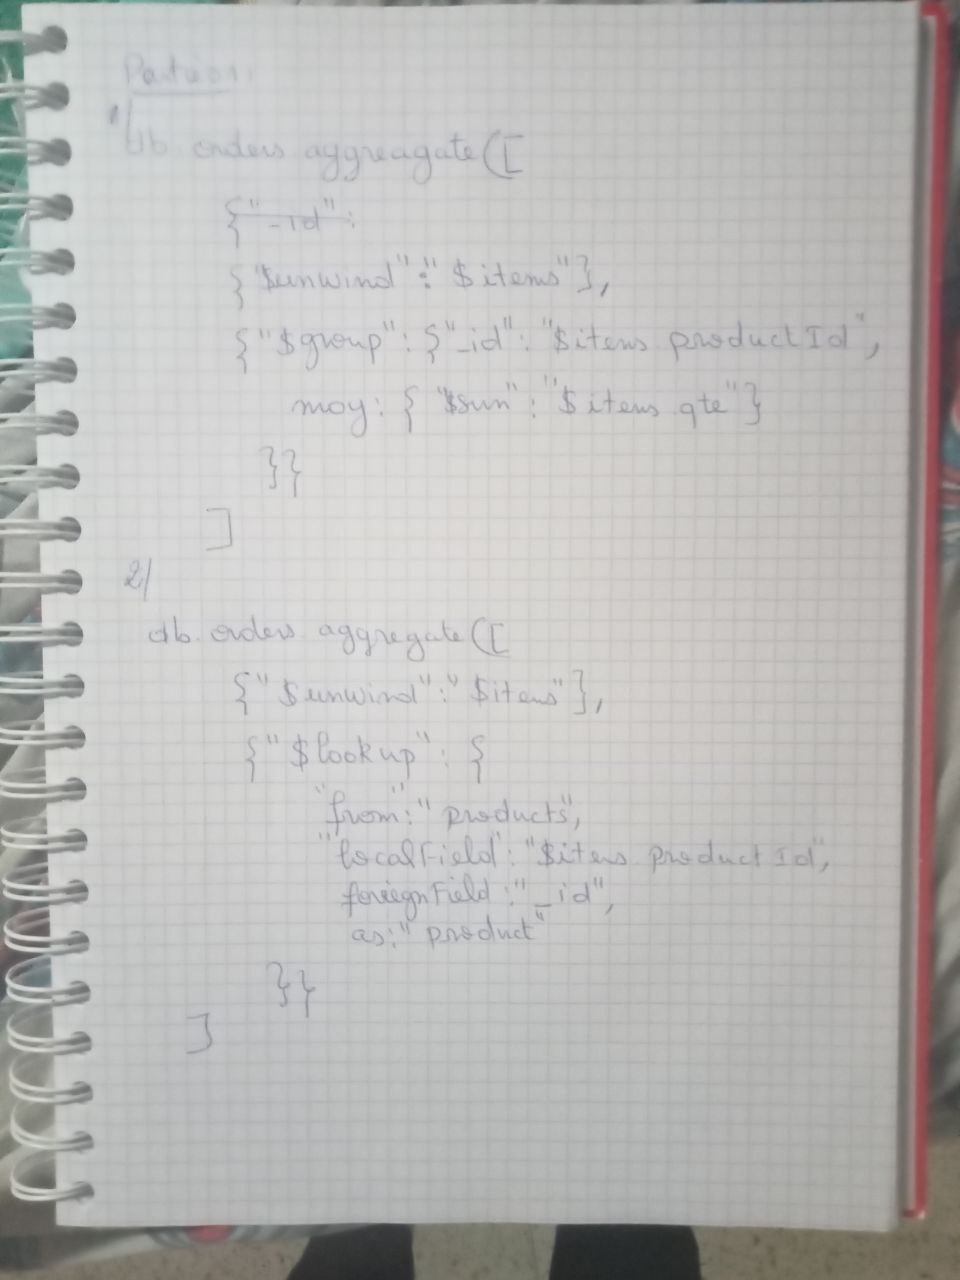 Partie 1:
1/
db. orders aggreagate([
{"_id":
{"$unwind":"$items"},
{"$group": {"_id": "$items productId",
moy: { "$sum": "$items qte"}
}}
]
2/
db. orders aggregate([
{"$unwind":"$items"},
{"$lookup": {
"from":"products",
"localField": "$items productId",
foreignField:"_id",
as:"product"
}}
]